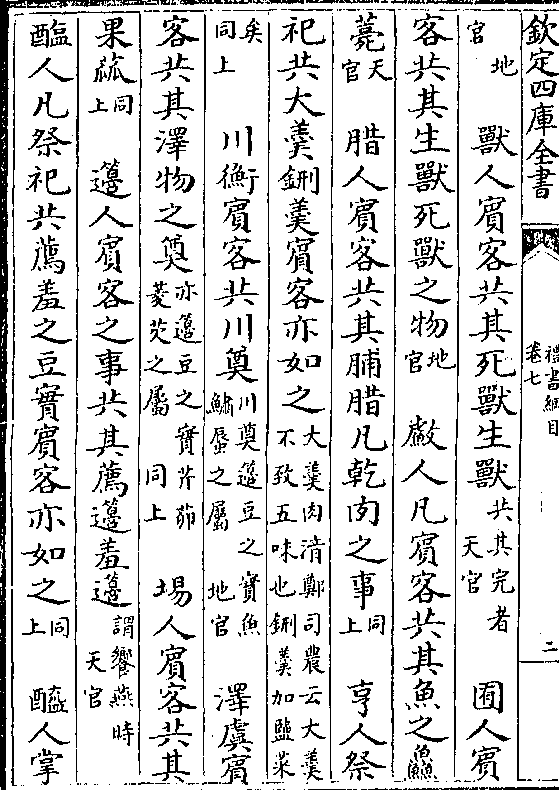 欽定四庫全書
禮書綱目
卷七
二
地官　獸人賓客共其死獸生獸共其完者天官　囿人賓
客共其生獸死獸之物地官　䱷人凡賓客共其魚之鱻
薧天官　腊人賓客共其脯腊凡乾肉之事同上　亨人祭
祀共大羹鉶羹賓客亦如之大羹肉湆鄭司農云大羹不致五味也鉶羹加鹽菜
矣同上　川衡賓客共川奠川奠籩豆之實魚鱐蜃之屬地官　澤虞賓
客共其澤物之奠亦籩豆之實芹茆菱芡之屬同上　場人賓客共其
果蓏同上　籩人賓客之事共其薦籩羞籩謂饗燕時天官
醢人凡祭祀共薦羞之豆實賓客亦如之同上　醯人掌